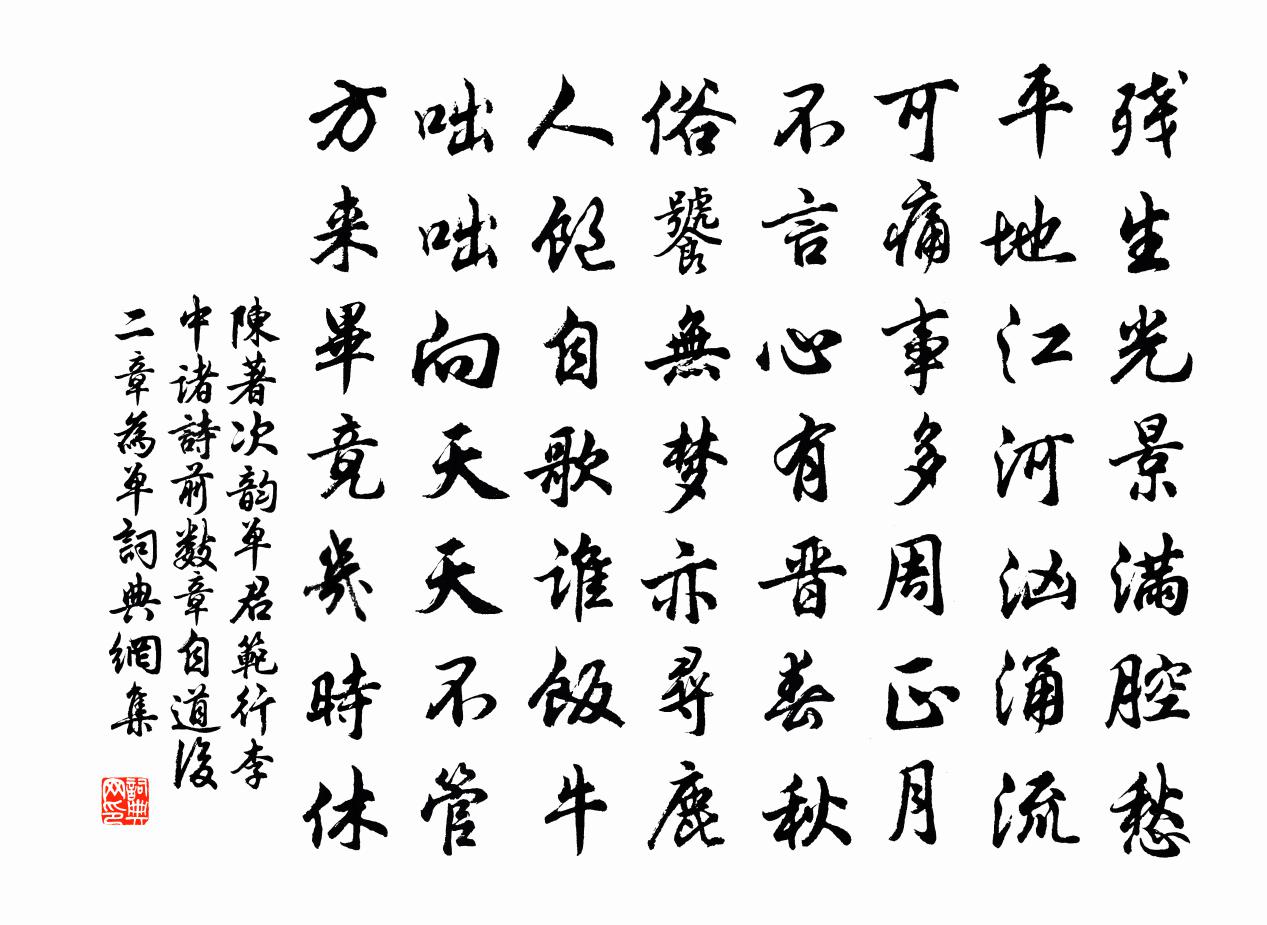 残生光景满腔愁
平地江河汹涌流
可痛事多周正月
不言心有晋春秋
俗饕無梦亦尋鹿
人飽自歌谁飯牛
咄咄向天天不管
方来畢竟幾時休
陳著次韵单君範行李
中诸詩前数章自道後
二章為单詞典網集
詞典
网印